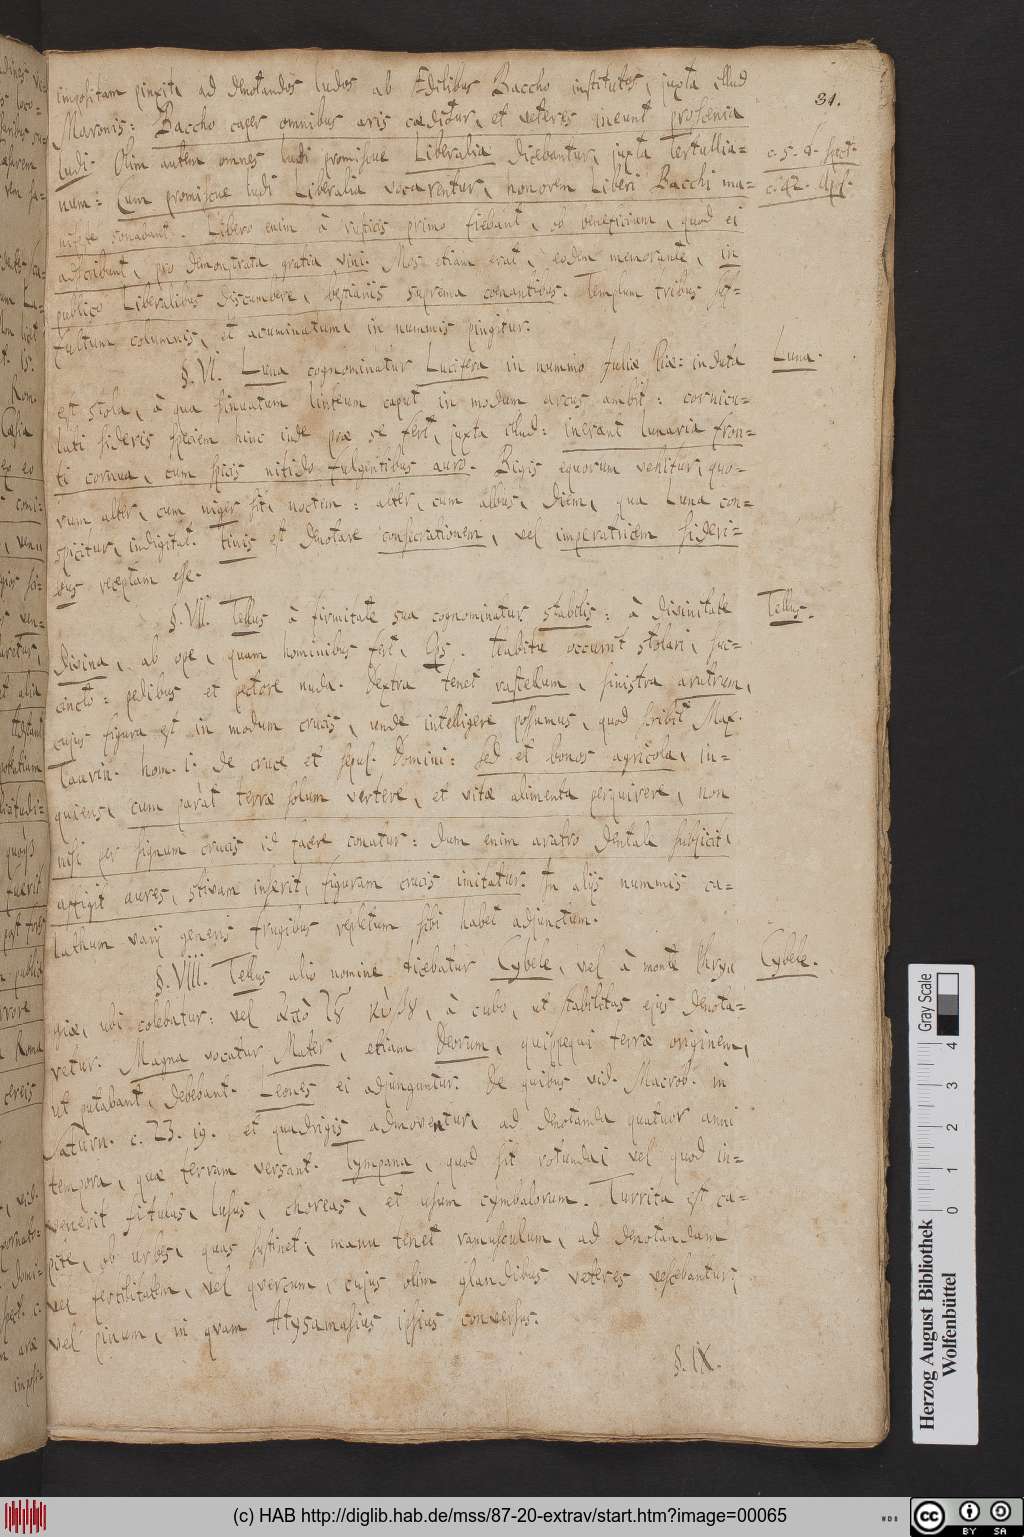 31.
impositam pinxit, ad denotandos ludos ab Edilibus Baccho institutos, juxta illud
Maronis: Baccho caper omnibus aris cæditur, et veteres ineunt proscenia
ludi. Olim autem omnes ludi promiscue Liberalia dicebantur, juxta Tertullia=
c. 5. d. spect.
num: Cum promiscue ludi Liberalia vocarentur, honorem Liberi Bacchi ma=
c. 42. Apl.
nifeste sonabant. Libero enim à rusticis primo fiebant, ob beneficium, quod ei
adscribunt, pro demonstrata gratia vini. Mos etiam erat, eodem memorante, in
publico Liberalibus discumbere, bestiariis suprema coenantibus. Templum tribus suf=
fultum columnis, et acuminatum, in nummis pingitur.
§. VI. Luna cognominatur Lucifera in nummo Juliæ Piæ: induta
Luna.
est stola, à qua sinuatum linteum caput in modum arcus ambit: cornicu=
lati sideris speciem hinc inde præ se fert, juxta illud: inerant lunaria fron=
ti cornua, cum spicis nitido fulgentibus auro. Bigis equorum vehitur, quo=
rum alter, cum niger sit, noctem: alter, cum albus, diem, qua Luna con=
spicitur, indigitat. Finis est denotare consecrationem, vel imperatricem sideri=
bus receptam esse.
§. VII. Tellus à firmitate sua cognominatur stabilis: à divinitate
Tellus.
divina, ab ope, quam hominibus fert, Ops. habitu occurrit stolari, suc=
cincto: pedibus et pectore nuda. Dextra tenet rastellum, sinistra aratrum,
cujus figura est in modum crucis, unde intelligere possumus, quod scribit Max.
Taurin. hom. 1. de cruce et sepul. Domini: sed et bonus agricola, in=
quiens, cum parat terræ solum vertere, et vitæ alimenta perquirere, non
nisi per signum crucis id facere conatur: dum enim aratro dentale subjicit,
affigit aures, stivam inserit, figuram crucis imitatur. In alijs nummis ca=
lathum varij generis frugibus repletum sibi habet adjunctum.
§. VIII. Tellus alio nomine dicebatur Cybele, vel à monte Phry=
Cybele.
giæ, ubi colebatur: vel ἀπὸ τȣ κύβȣ, à cubo, ut stabilitas ejus denota=
retur. Magna vocatur Mater, etiam Deorum, quippequi terræ originem,
ut putabant, debebant. Leones ei adjunguntur. de quibus vid. Macrob. in
Saturn. c. 23. 19. et quadrigis admoventur, ad denotanda quatuor anni
tempora, quæ terram versant. Tympana, quod sit rotunda; vel quod in=
venerit fistulas, lusus, choreas, et usum cymbalorum. Turrita est ca=
pite, ob urbes, quas sustinet, manu tenet ramusculum, ad denotandam
vel fertilitatem, vel quercum, cujus olim glandibus veteres vescebantur;
vel pinum, in quam Atys ipsius conversus.
§. IX.
Gray Scale
0 1 2 3 4
Herzog August Bibliothek
Wolfenbüttel
(c) HAB http://diglib.hab.de/mss/87-20-extrav/start.htm?image=00065
cc BY SA